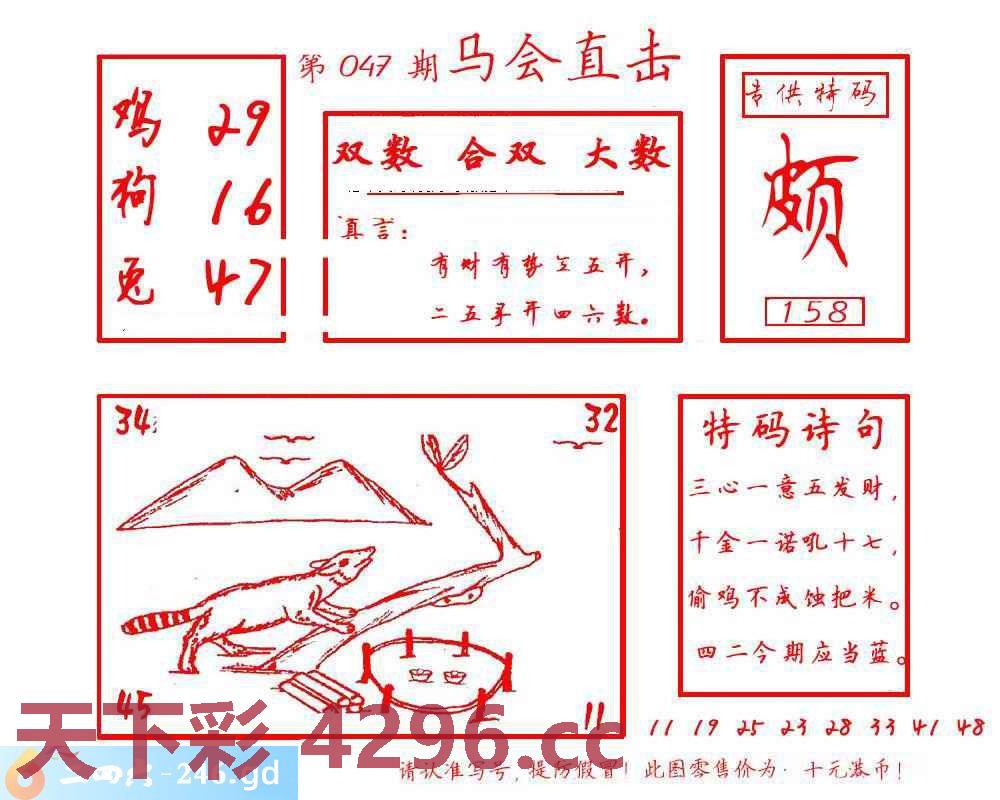 第 047 期 马会直击
鸡 29
狗 16
兔 47
双数 合双 大数
真言：
有财有势三五开，
二五寻开四六数。
专供特码
颇
158
34
32
45
11
特码诗句
三心一意五发财，
千金一诺吼十七，
偷鸡不成蚀把米。
四二今期应当蓝。
11 19 25 23 28 33 41 48
天下彩 4296.cc
-246.gd
请认准写号，提防假冒！此图零售价为·十元港币！